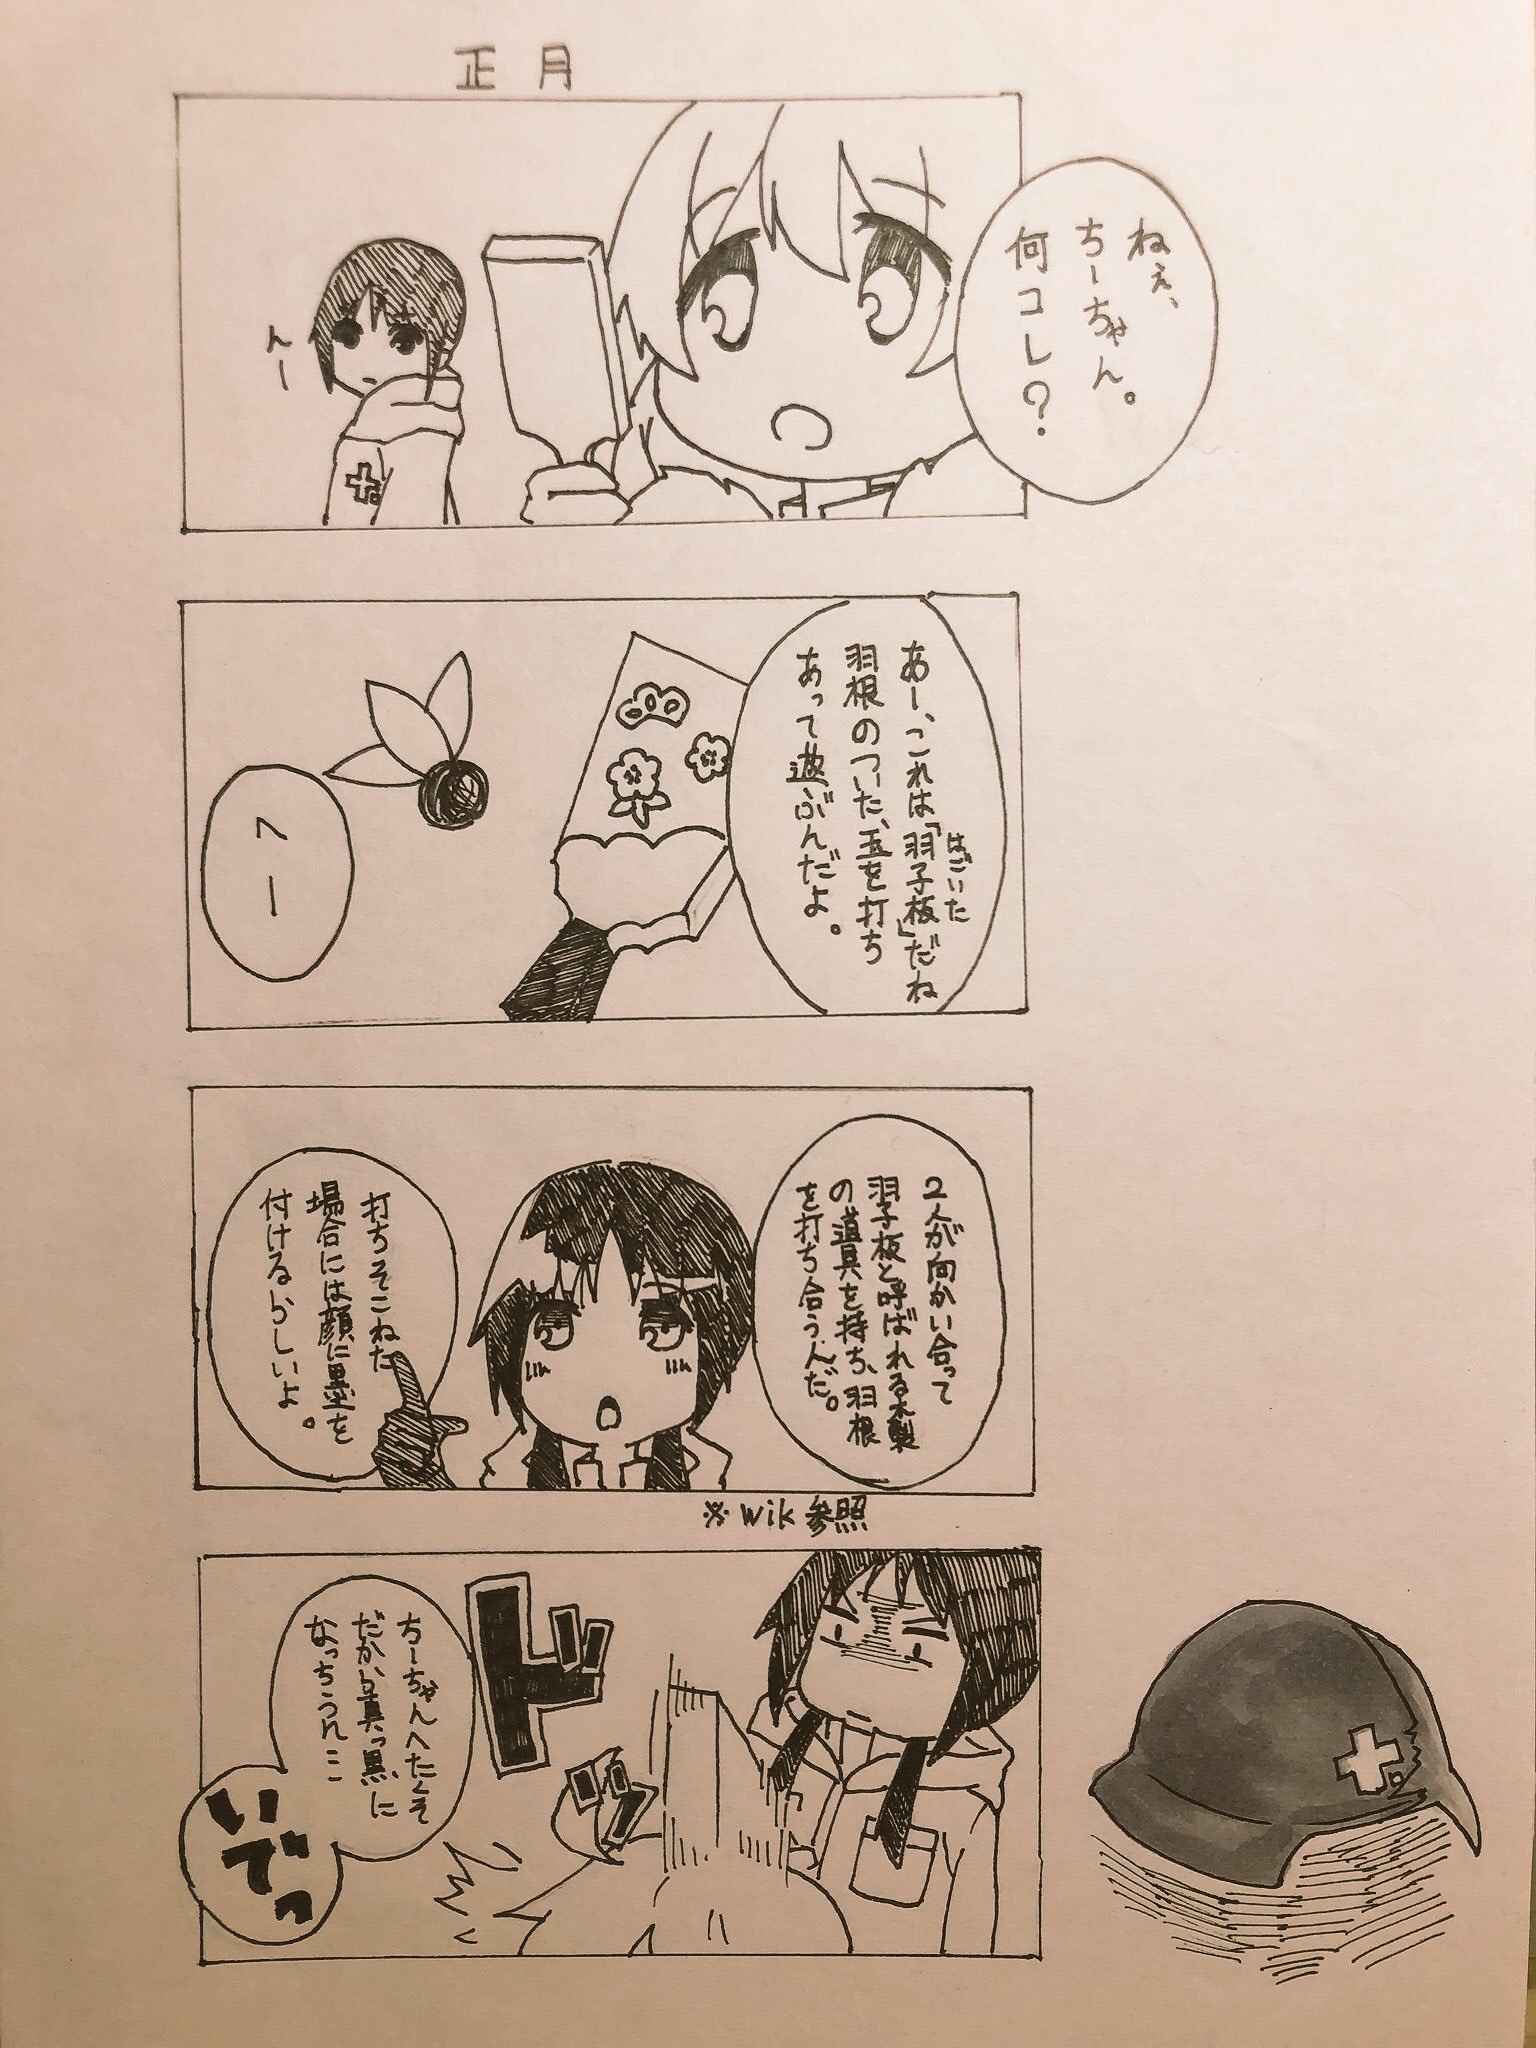 正月
ねぇ、
ちーちゃん。
何コレ?
んー
あー、これは「羽子板」だね
はごいた
羽根のついた、玉を打ち
あって遊ぶんだよ。
へー
2人が向かい合って
羽子板と呼ばれる木製
の道具を持ち、羽根
を打ち合うんだ。
打ちそこねた
場合には顔に墨を
付けるらしいよ。
※wik参照
ちーちゃんへたくそ
だから真っ黒に
なっちゃうにこ
ドゴッ
いでっ